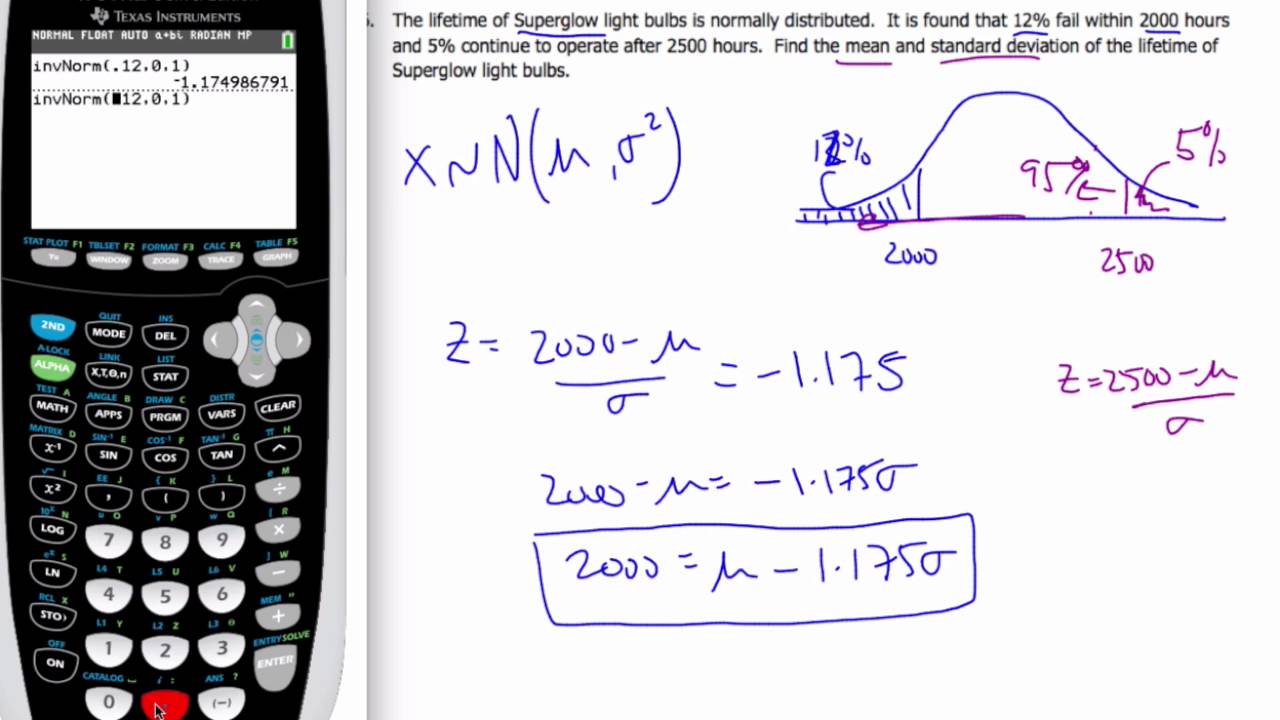 TEXAS INSTRUMENTS
NORMAL FLOAT AUTO a+bi RADIAN MP
invNorm(.12,0,1)
-1.174986791
invNorm(12,0,1)
STAT PLOT F1 TBLSET F2 FORMAT F3 CALC F4 TABLE F5
Y= WINDOW ZOOM TRACE GRAPH
QUIT INS
2ND MODE DEL
A-LOCK LINK LIST
ALPHA X,T,θ,n STAT
TEST A ANGLE B DRAW C DISTR
MATH APPS PRGM VARS CLEAR
MATRIX D SIN⁻¹ E COS⁻¹ F TAN⁻¹ G π H
x⁻¹ SIN COS TAN ^
√ I EE J { K } L e M
x² , ( ) ÷
10ˣ N u O v P w Q [ R
LOG 7 8 9 ×
eˣ S L4 T L5 U L6 V ] W
LN 4 5 6 −
RCL X L1 Y L2 Z L3 θ MEM "
STO› 1 2 3 +
OFF CATALOG i : ANS ? ENTRY SOLVE
ON 0 (−) ENTER
The lifetime of Superglow light bulbs is normally distributed. It is found that 12% fail within 2000 hours
and 5% continue to operate after 2500 hours. Find the mean and standard deviation of the lifetime of
Superglow light bulbs.
X~N(μ,σ²)
12%
95%
5%
2000
2500
Z = 2000-μ/σ = -1.175
Z = 2500-μ/σ
2000-μ = -1.175σ
2000 = μ - 1.175σ